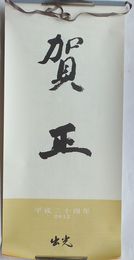 賀
正
平成二十四年
2012
出光